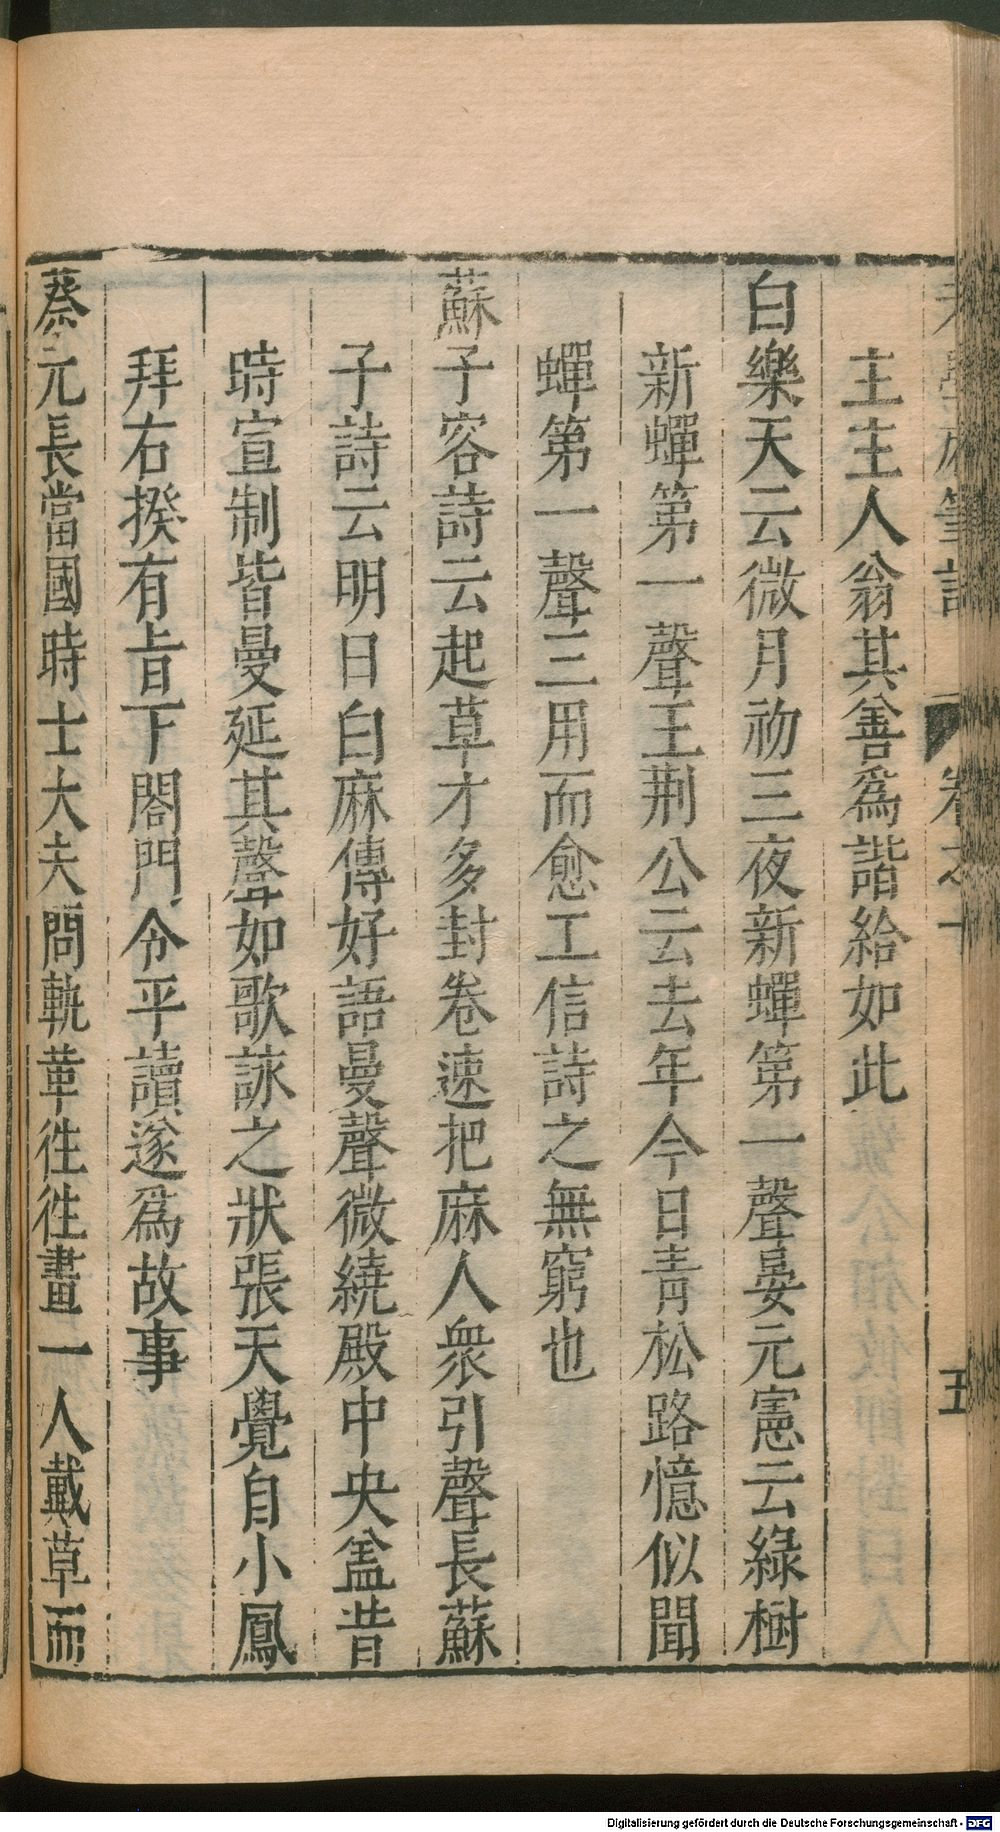 老學庵筆記 卷之十 五
主主人翁其善爲諧給如此
白樂天云微月初三夜新蟬第一聲晏元憲云綠樹
新蟬第一聲王荆公云去年今日青松路憶似聞
蟬第一聲三用而愈工信詩之無窮也
蘇子容詩云起草才多封卷速把麻人衆引聲長蘇
子詩云明日白麻傳好語曼聲微繞殿中央盖昔
時宣制皆曼延其聲如歌詠之狀張天覺自小鳳
拜右揆有旨下閤門令平讀遂爲故事
蔡元長當國時士大夫問軌革徃徃畫一人戴草而
Digitalisierung gefördert durch die Deutsche Forschungsgemeinschaft - DFG